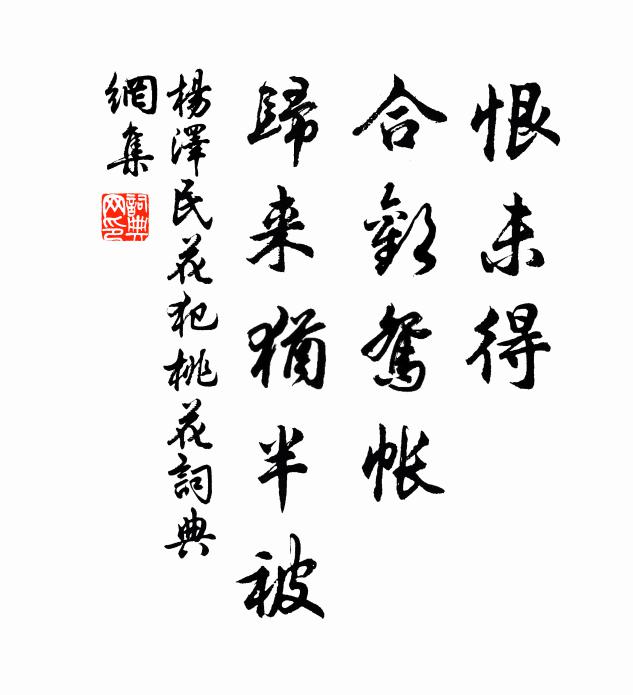 恨未得
合歡鴛帳
歸来猶半被
楊澤民花犯桃花詞典
網集
詞典
网印